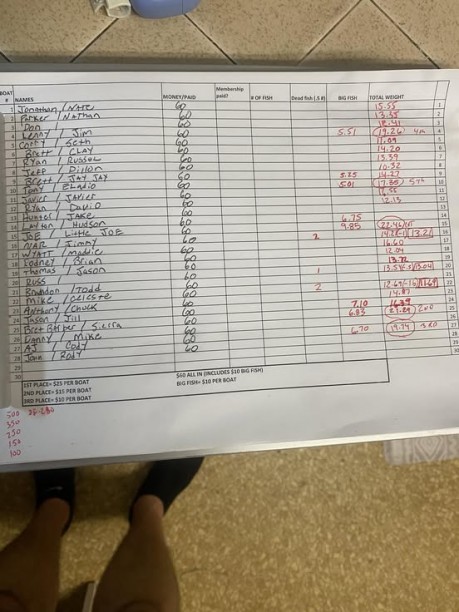 BOAT # NAMES MONEY/PAID Membership paid? # OF FISH Dead fish (.5 #) BIG FISH TOTAL WEIGHT
1 Jonathan / Nate 60 15.55 1
2 Parker / Nathan 60 13.55 2
3 Don 60 3
4 Lenny / Jim 60 5.51 19.26 4th 4
5 Corey / Seth 60 17.09
6 Brett / CLAY 60 14.20
7 Ryan / Russel 60 13.39
8 Jeff / Dillon 60 10.32
9 Brett / JAY JAY 60 5.25 14.27
10 Tony / Eladio 60 5.01 17.88 5th
11 Javier / Javier 60
12 Ryan / David 60 12.13
13 Hunter / JAKE 60 6.75
14 Layton / Hudson 60 9.85 22.46 1st
15 JOE / Little JOE 60 2
16 OMAR / Jimmy 60 16.60
17 WYATT / Maddie 60 12.04
18 Rodney / Brian 60 13.72
19 Thomas / Jason 60 1 13.54-.5 13.04
20 RUSS 60
21 Brandon / Todd 60 2 12.69 11.69
22 Mike / Celeste 60 14.87
23 Anthony / Chuck 60 7.10
24 Jason / Jill 60 6.83 21.29 2nd
25 Bret / Sierra 60
26 Danny / Mike 60 6.70 19.74 3RD
27 AJ / Cody 60
28 Jose / Rody 60
29
30
1ST PLACE= $25 PER BOAT $60 ALL IN (INCLUDES $10 BIG FISH)
2ND PLACE= $15 PER BOAT BIG FISH= $10 PER BOAT
3RD PLACE= $10 PER BOAT
500
350
250
150
100